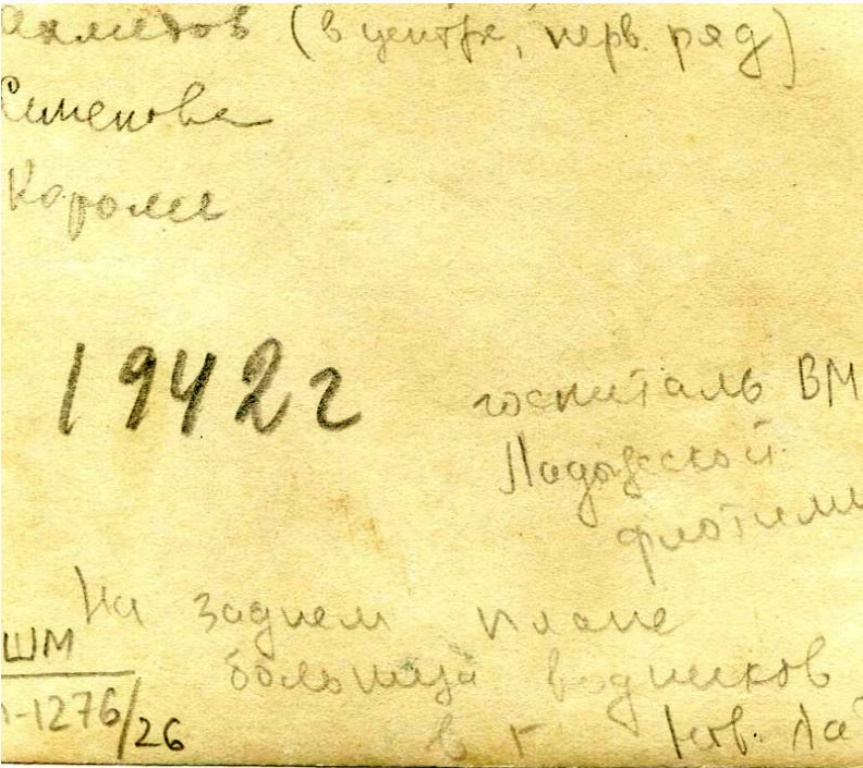 Ахметов (в центре, перв. ряд)
Семенова
Король
1942 г
госпиталь ВМ
Ладожской
флотили
На заднем плане
ШМ
больница водников
-1276/26
в г. Нов. Ла